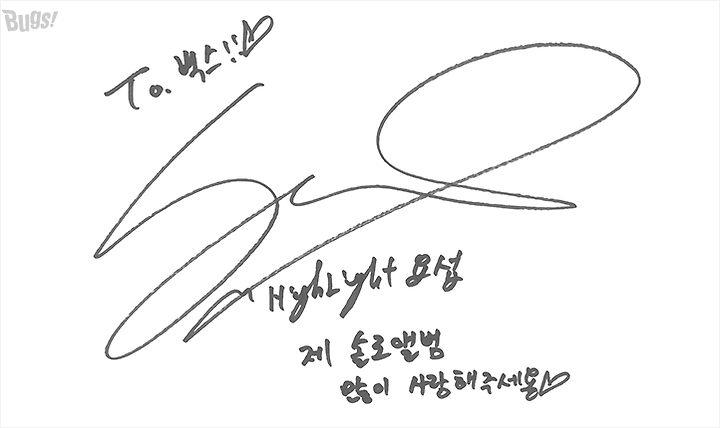 Bugs!
To. 벅스!!♡
HighLight 요섭
제 솔로앨범
많이 사랑해주세용♡